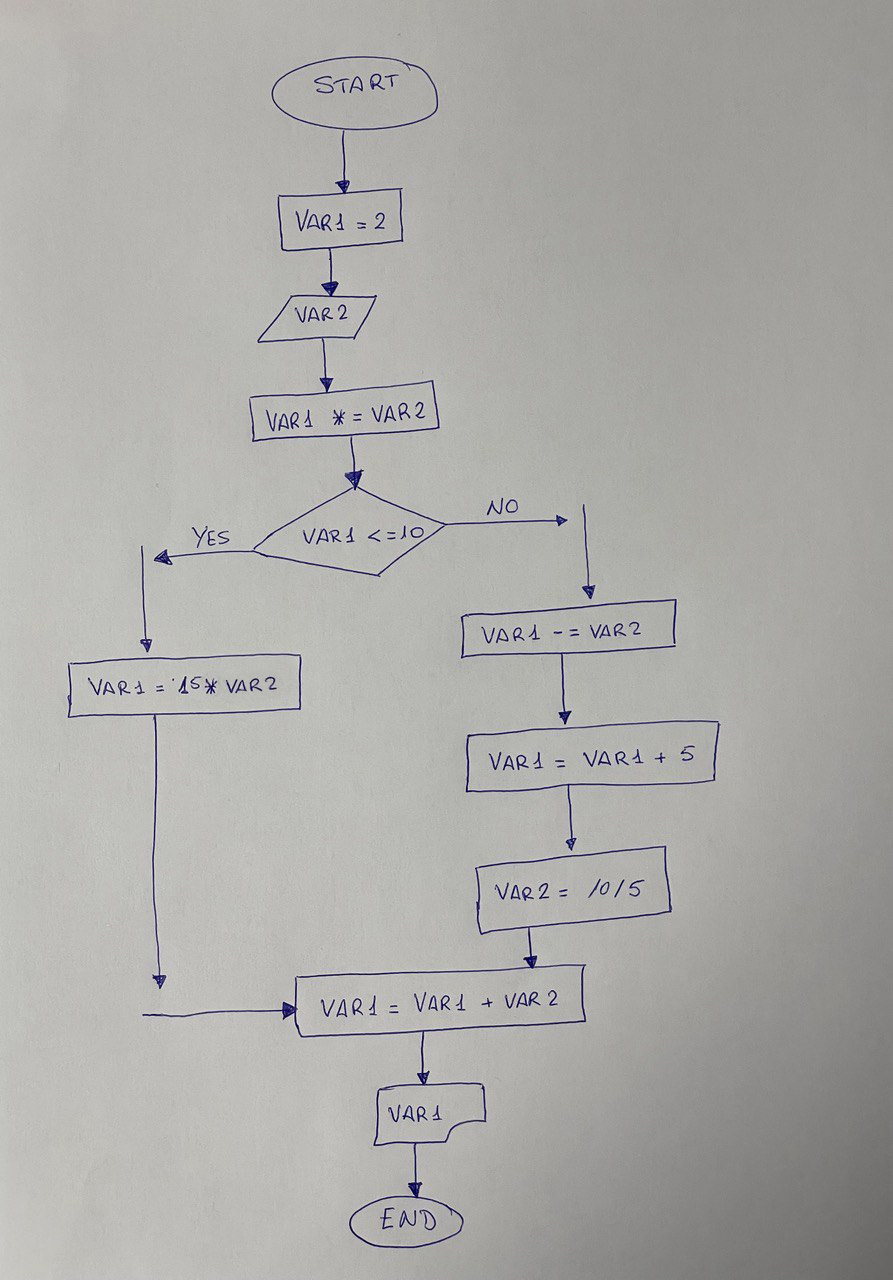 START
VAR1 = 2
VAR2
VAR1 *= VAR2
VAR1 <=10
YES
NO
VAR1 = 15* VAR2
VAR1 -= VAR2
VAR1 = VAR1 + 5
VAR2 = 10/5
VAR1 = VAR1 + VAR2
VAR1
END